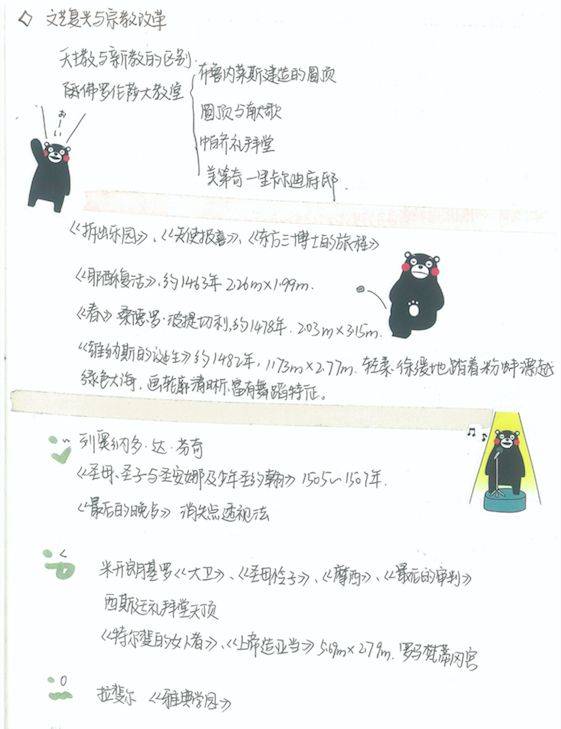 文艺复兴与宗教改革
天主教与新教的区别.
佛罗伦萨大教堂
布鲁内莱斯建造的圆顶
圆顶与献歌
帕齐礼拜堂
美第奇一里卡尔迪府邸.
お～い
《拆出乐园》、《天使报喜》、《东方三博士的旅程》
《耶酥復活》,约1463年 2.26m×1.99m.
《春》桑德罗·波提切利,约1478年. 2.03m×3.15m.
《维纳斯的诞生》约1482年, 1.173m×2.77m. 轻柔、徐缓地踏着粉蚌漂越
绿色大海. 画轮廓清晰.富有舞蹈特征。
列奥纳多·达·芬奇
《圣母、圣子与圣安娜及少年圣约翰》1505~1507年.
《最后的晚餐》 消失点透视法
米开朗基罗《大卫》、《圣母怜子》、《摩西》、《最后的审判》
西斯廷礼拜堂天顶
《特尔斐的女卜者》、《上帝造亚当》5.69m×2.79m. 罗马梵蒂冈宫
拉斐尔 《雅典学园》